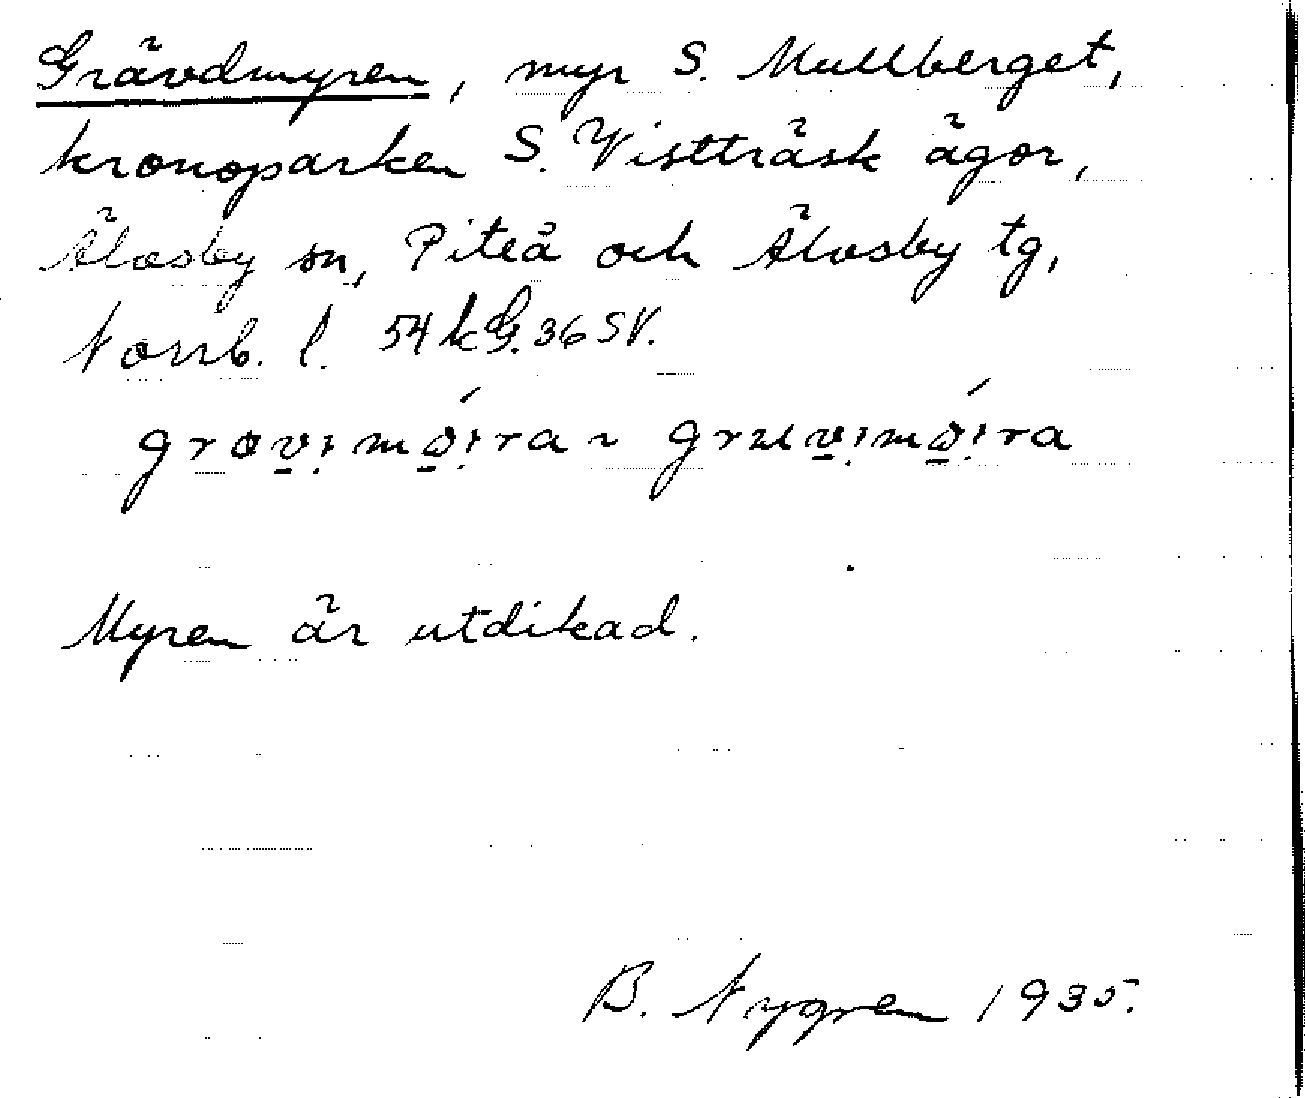 Grävdmyren, myr S. Mullberget,
kronoparken S. Vistträsk ägor,
Älvsby sn, Piteå och Älvsby tg,
Norrb. l. 54 k G. 36 SV.
Myren är utdikad.
B. Nygren 1935.